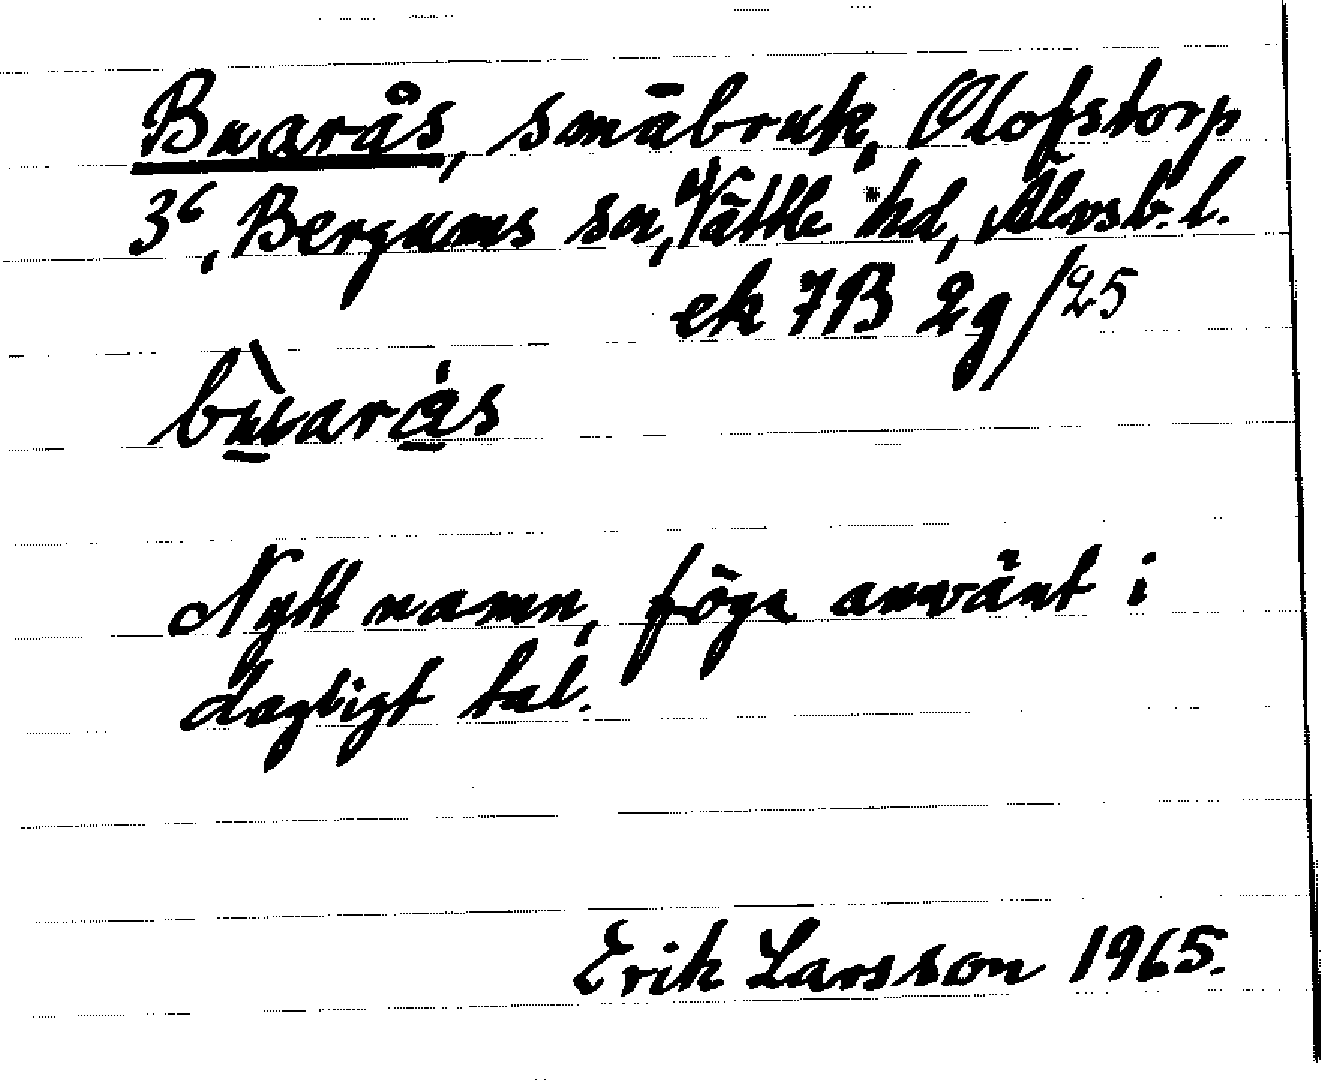 Buarås, småbruk, Olofstorp
3⁶, Bergums sn, Vättle hd, Älvsb. l.
ek 7B 2g/25
bùarås
Nytt namn, föga använt i
dagligt tal.
Erik Larsson 1965.